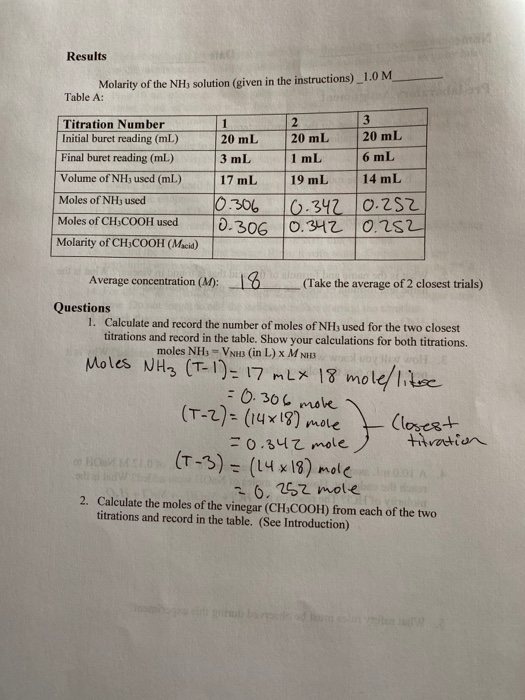 Results
Molarity of the NH₃ solution (given in the instructions) _1.0 M
Table A:
Titration Number 1 2 3
Initial buret reading (mL) 20 mL 20 mL 20 mL
Final buret reading (mL) 3 mL 1 mL 6 mL
Volume of NH₃ used (mL) 17 mL 19 mL 14 mL
Moles of NH₃ used 0.306 0.342 0.252
Moles of CH₃COOH used 0.306 0.342 0.252
Molarity of CH₃COOH (Macid)
Average concentration (M): 18 (Take the average of 2 closest trials)
Questions
1. Calculate and record the number of moles of NH₃ used for the two closest
titrations and record in the table. Show your calculations for both titrations.
moles NH₃ = VNH3 (in L) x M NH3
Moles NH₃ (T-1) = 17 mL x 18 mole/litre
= 0.306 mole
(T-2) = (14x18) mole Closest
= 0.342 mole titration
(T-3) = (14x18) mole
= 0.252 mole
2. Calculate the moles of the vinegar (CH₃COOH) from each of the two
titrations and record in the table. (See Introduction)